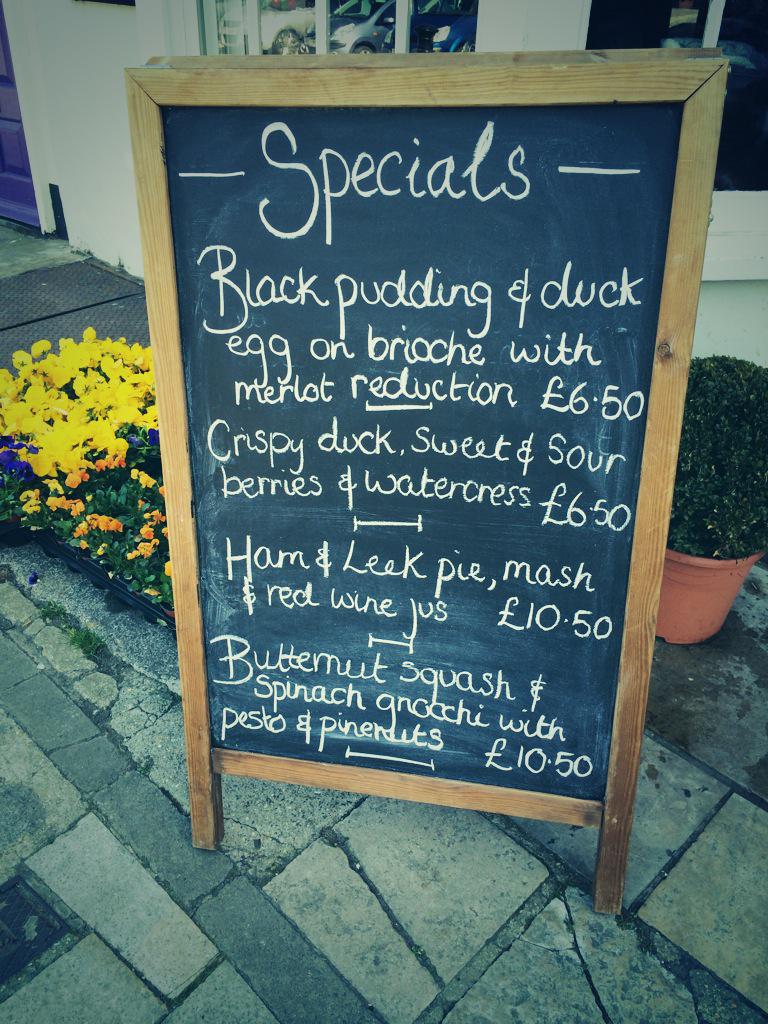 Specials
Black pudding & duck
egg on brioche with
merlot reduction £6.50
Crispy duck, Sweet & Sour
berries & watercress £6.50
Ham & Leek pie, mash
& red wine jus £10.50
Butternut squash &
spinach gnocchi with
pesto & pinenuts £10.50